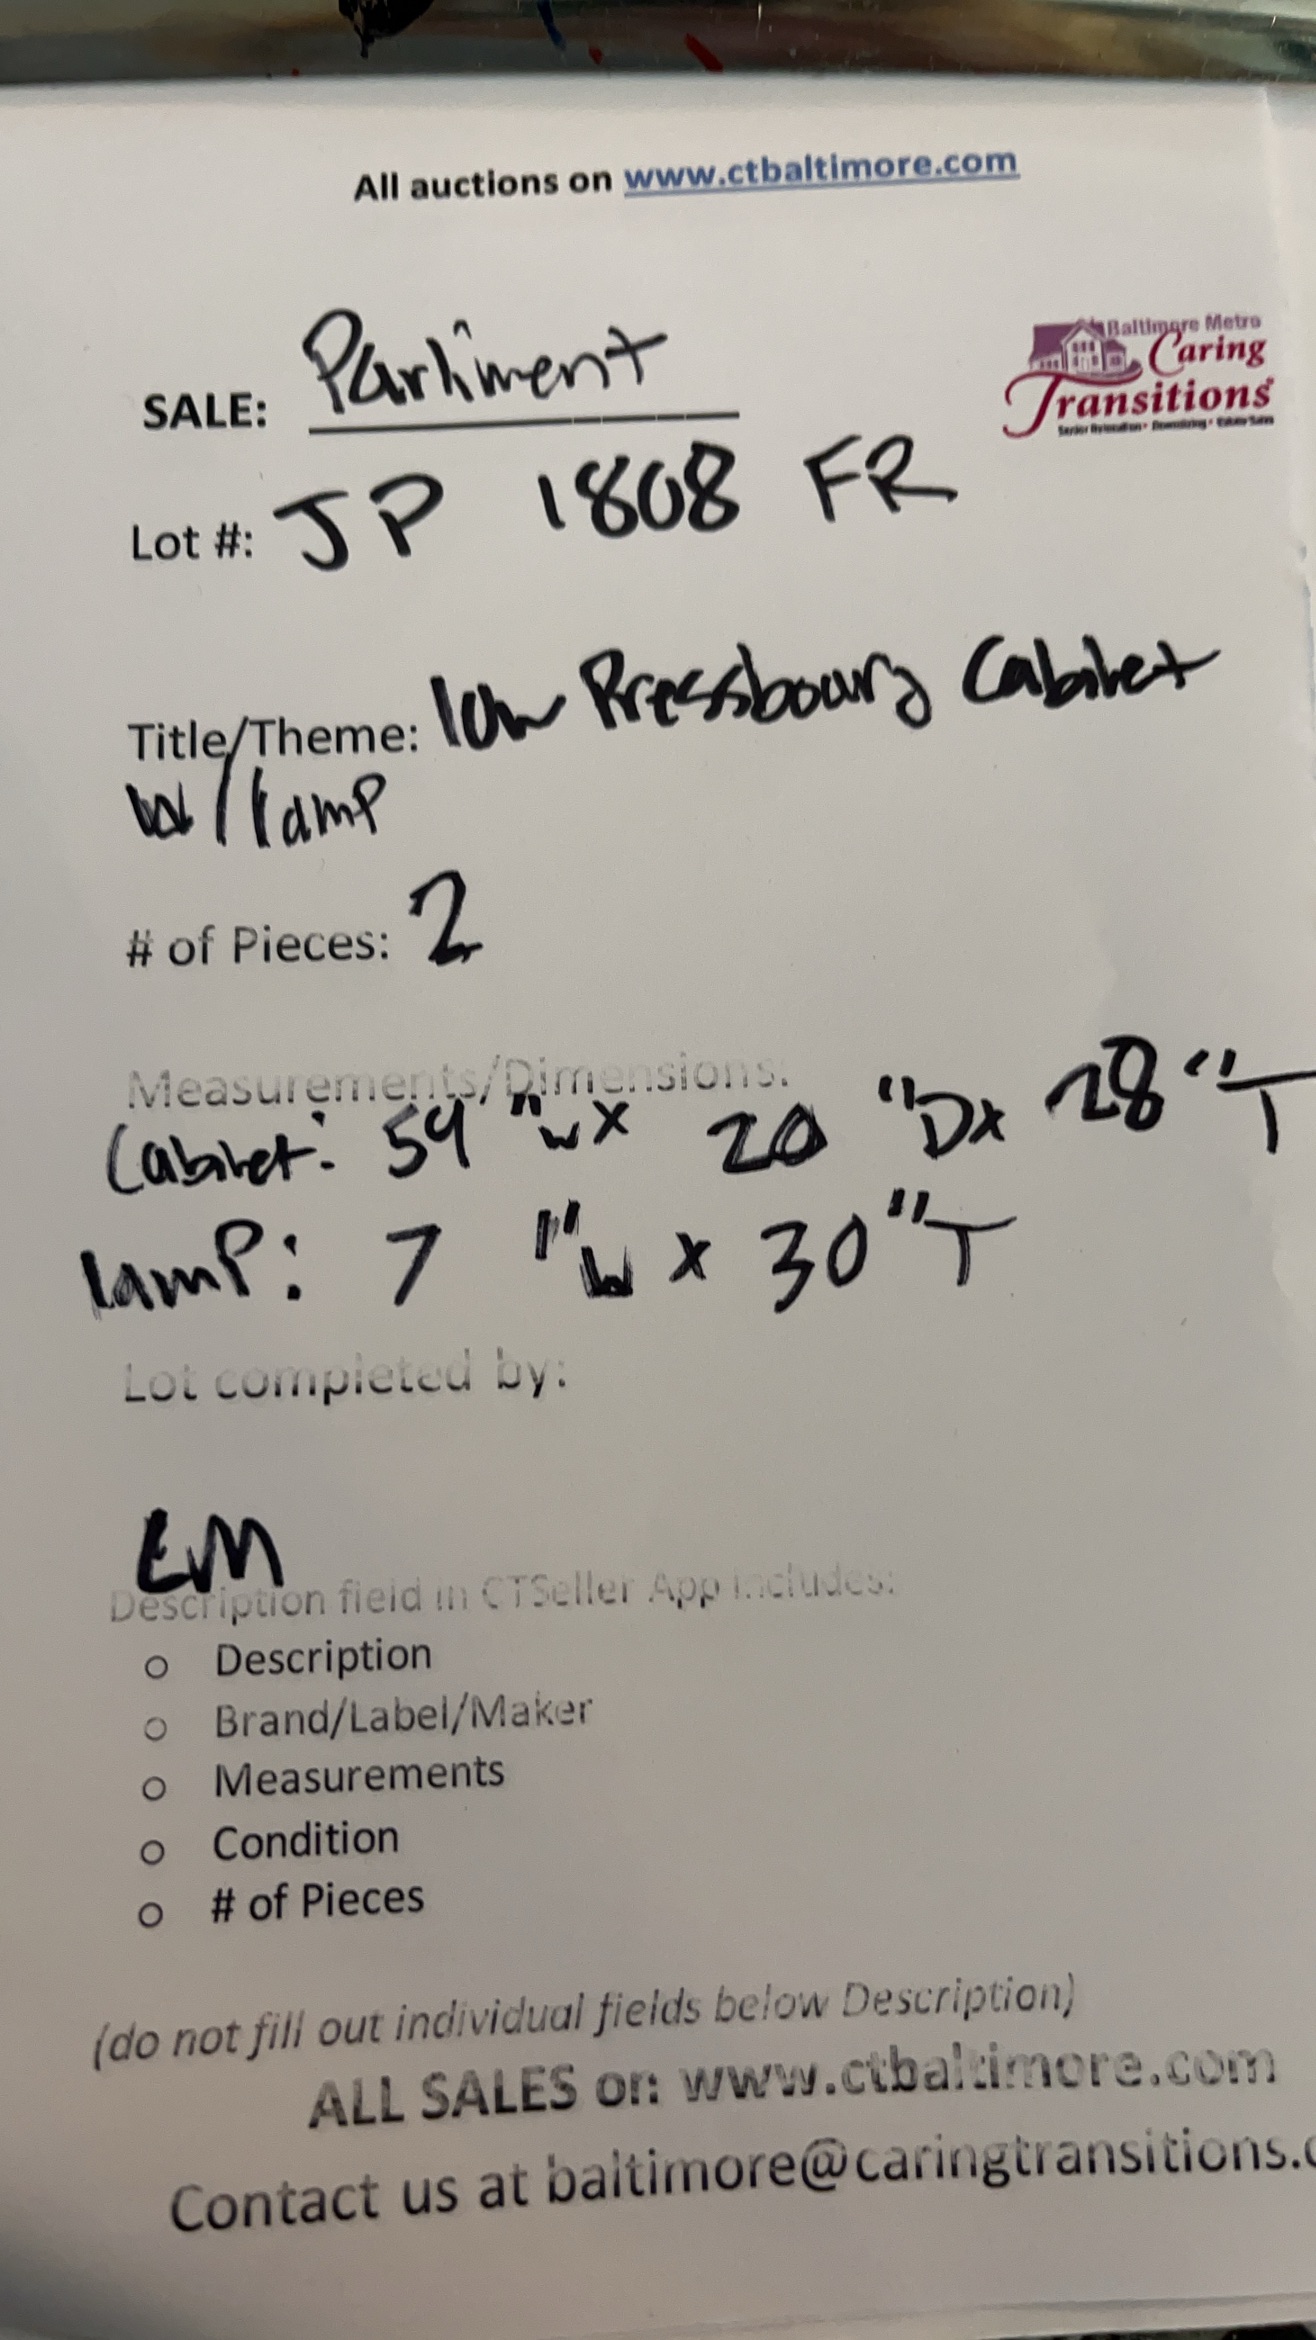 All auctions on www.ctbaltimore.com
Baltimore Metro
Caring
Transitions
Senior Relocation • Downsizing • Estate Sales
SALE: Parliment
Lot #: JP 1808 FR
Title/Theme: low Pressbourg Cabinet
w/lamp
# of Pieces: 2
Measurements/Dimensions:
Cabinet: 59 "W x 20 "D x 28 "T
lamp: 7 "W x 30 "T
Lot completed by:
EM
Description field in CTSeller App includes:
o Description
o Brand/Label/Maker
o Measurements
o Condition
o # of Pieces
(do not fill out individual fields below Description)
ALL SALES on: www.ctbaltimore.com
Contact us at baltimore@caringtransitions.c